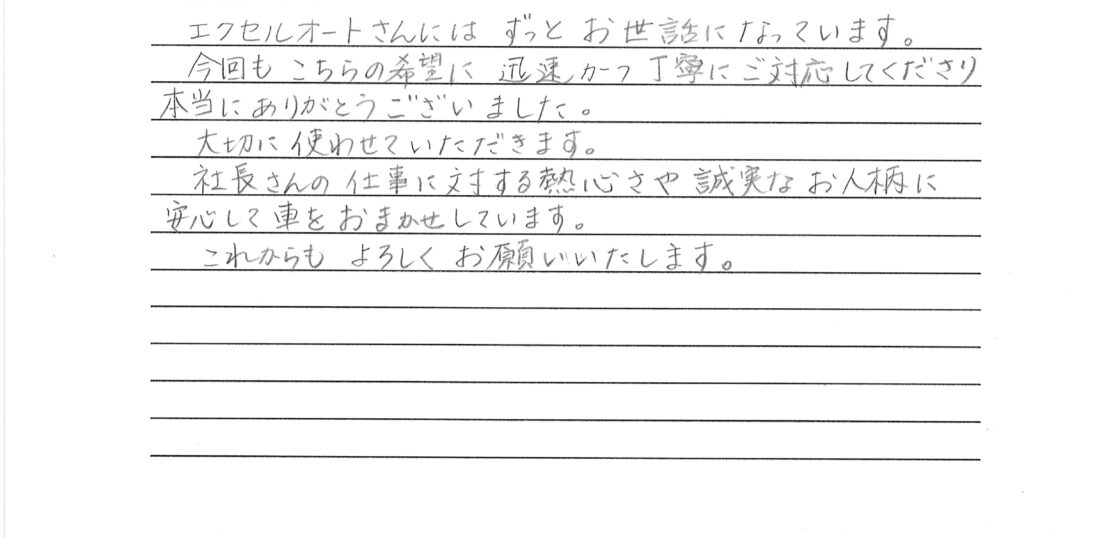 エクセルオートさんには ずっと お世話になっています。
今回も こちらの希望に 迅速かつ丁寧にご対応してくださり
本当にありがとうございました。
大切に使わせていただきます。
社長さんの仕事に対する熱心さや 誠実なお人柄に
安心して車をおまかせしています。
これからも よろしく お願いいたします。